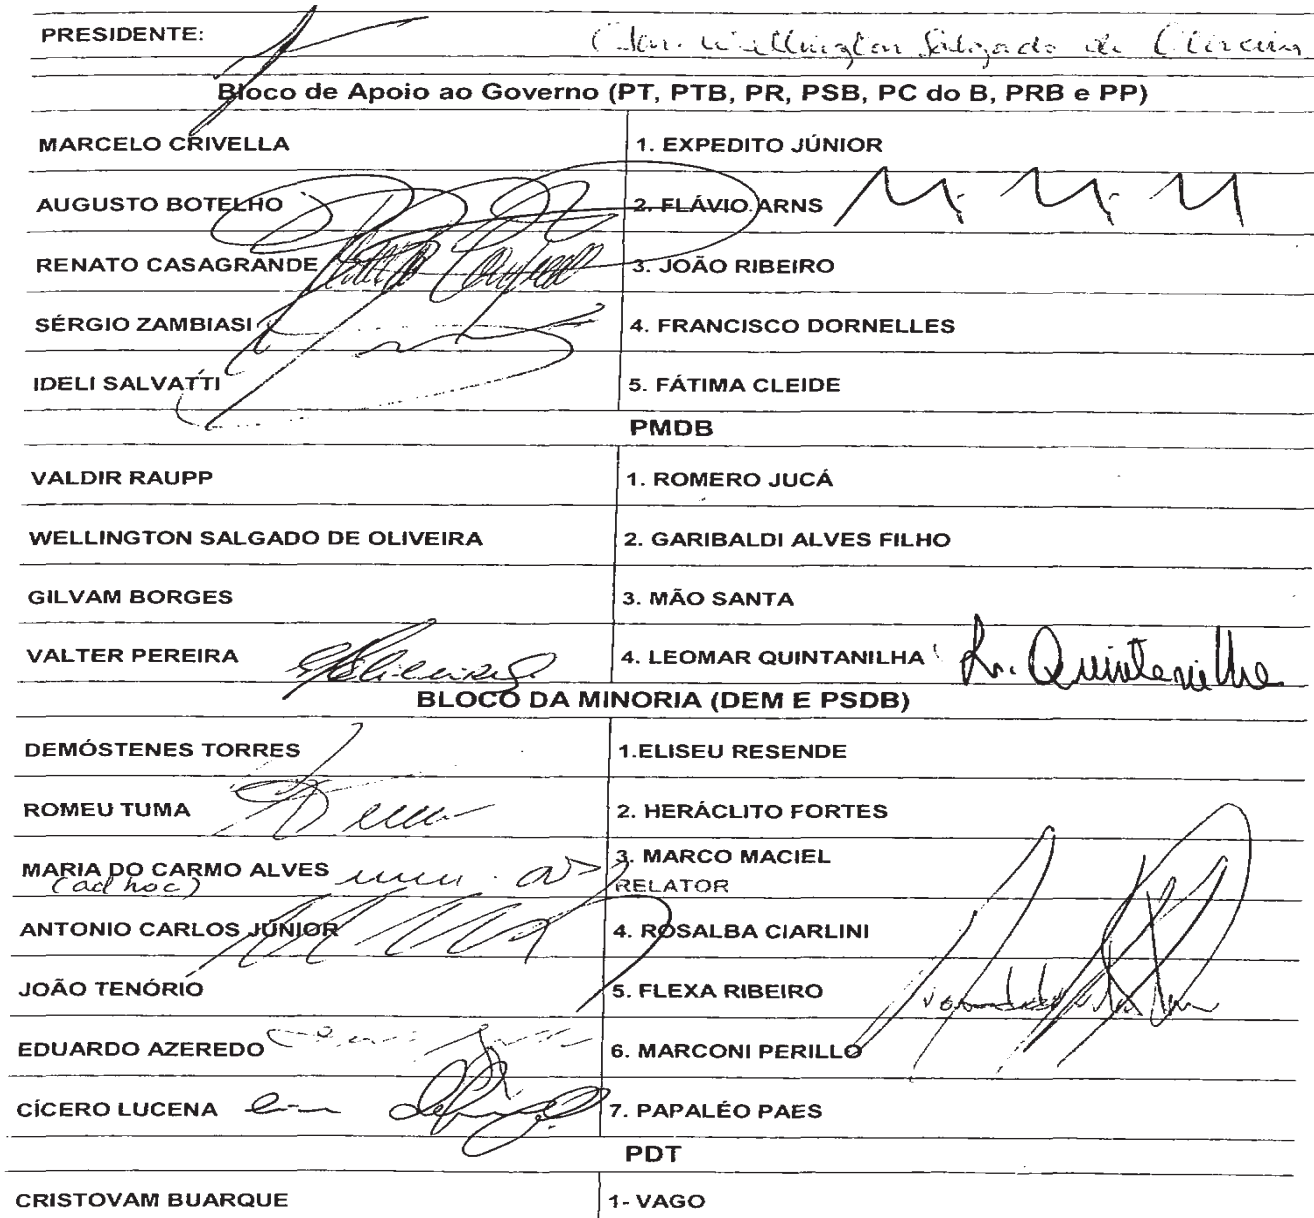 PRESIDENTE: Wellington Salgado de Oliveira
Bloco de Apoio ao Governo (PT, PTB, PR, PSB, PC do B, PRB e PP)
MARCELO CRIVELLA 1. EXPEDITO JÚNIOR
AUGUSTO BOTELHO 2. FLÁVIO ARNS
RENATO CASAGRANDE 3. JOÃO RIBEIRO
SÉRGIO ZAMBIASI 4. FRANCISCO DORNELLES
IDELI SALVATTI 5. FÁTIMA CLEIDE
PMDB
VALDIR RAUPP 1. ROMERO JUCÁ
WELLINGTON SALGADO DE OLIVEIRA 2. GARIBALDI ALVES FILHO
GILVAM BORGES 3. MÃO SANTA
VALTER PEREIRA 4. LEOMAR QUINTANILHA Quintanilha
BLOCO DA MINORIA (DEM E PSDB)
DEMÓSTENES TORRES 1.ELISEU RESENDE
ROMEU TUMA 2. HERÁCLITO FORTES
MARIA DO CARMO ALVES 3. MARCO MACIEL
(ad hoc) RELATOR
ANTONIO CARLOS JÚNIOR 4. ROSALBA CIARLINI
JOÃO TENÓRIO 5. FLEXA RIBEIRO
EDUARDO AZEREDO 6. MARCONI PERILLO
CÍCERO LUCENA 7. PAPALÉO PAES
PDT
CRISTOVAM BUARQUE 1- VAGO